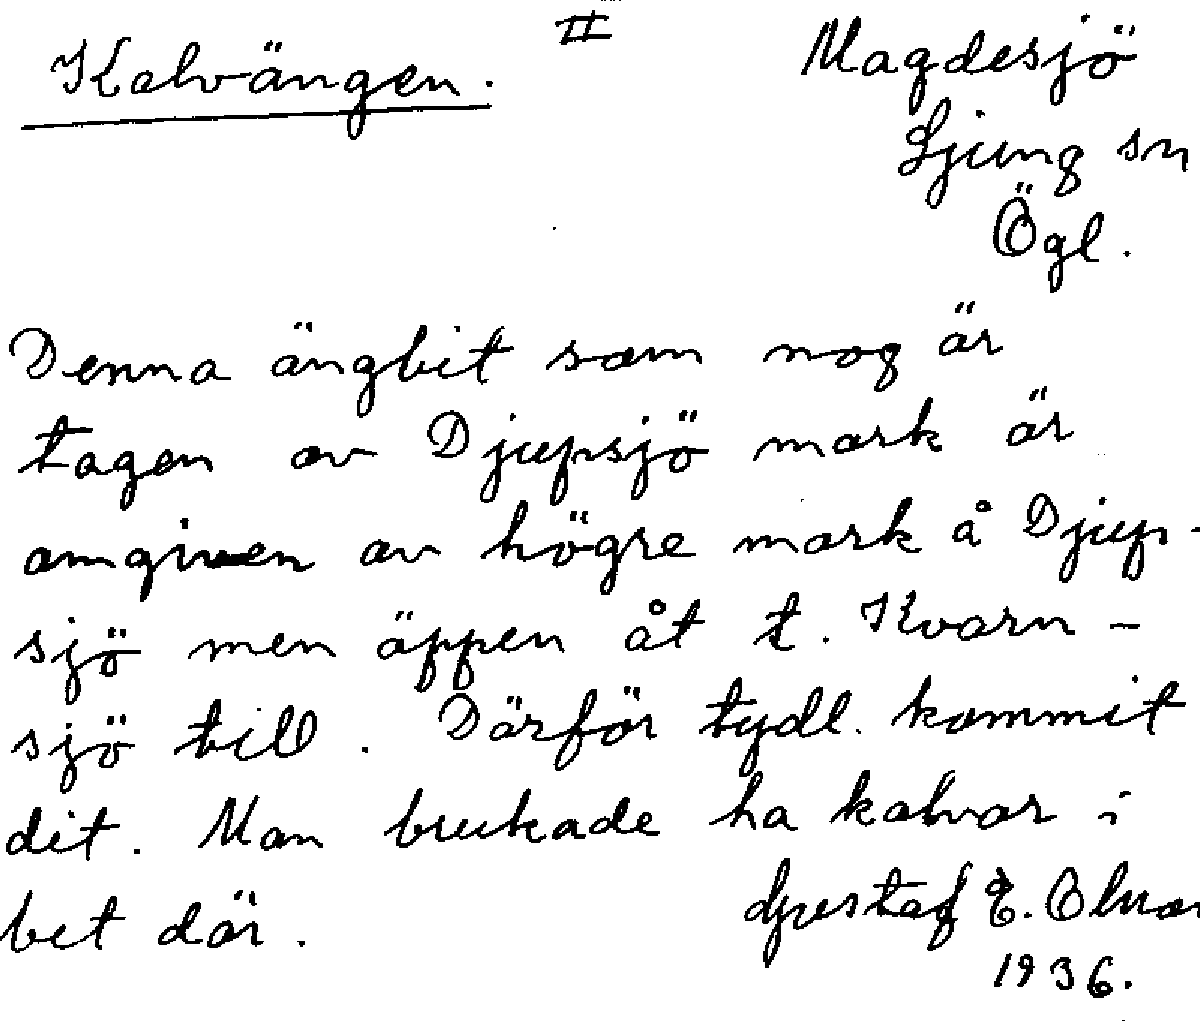 II
Kalvängen.
Magdesjö
Ljung sn
Ögl.
Denna ängbit som nog är
tagen av Djupsjö mark är
omgiven av högre mark å Djup-
sjö men äppen åt t. Kvarn-
sjö till. Därför tydl. kommit
dit. Man brukade ha kalvar i
bet där.
Gustaf E.
1936.